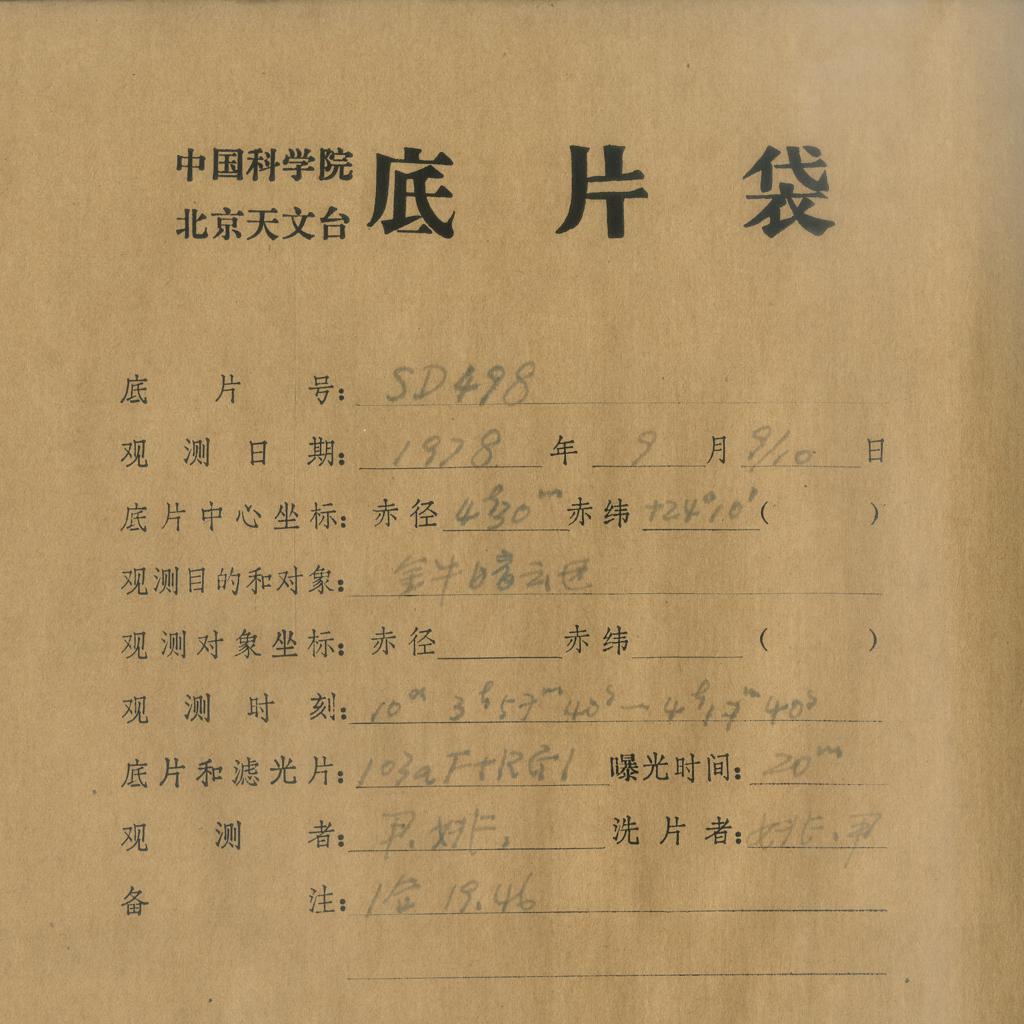 中国科学院
北京天文台
底片袋
底片号: SD498
观测日期: 1978 年 9 月 9/10 日
底片中心坐标: 赤径 4h30m 赤纬 +24°10′ ( )
观测目的和对象: 金牛暗云
观测对象坐标: 赤径 赤纬 ( )
观测时刻: 10d 3h57m40s — 4h17m40s
底片和滤光片: 103aF+RG1 曝光时间: 20m
观测者: 尹. 姚 洗片者: 姚 . 尹
备注: 19.46